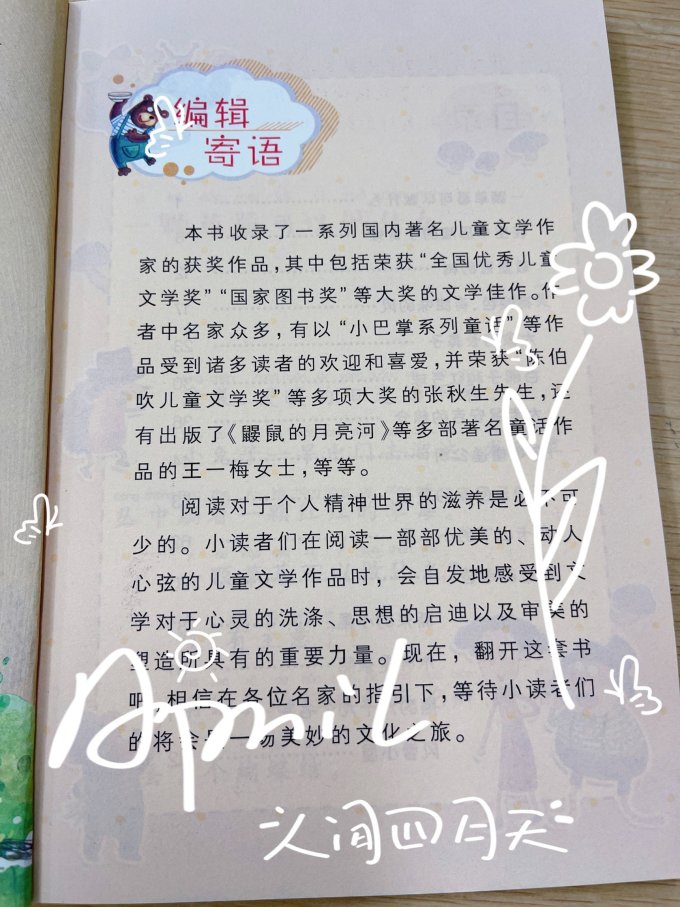 编辑
寄语
本书收录了一系列国内著名儿童文学作
家的获奖作品,其中包括荣获“全国优秀儿童
文学奖”“国家图书奖”等大奖的文学佳作。作
者中名家众多,有以“小巴掌系列童话”等作
品受到诸多读者的欢迎和喜爱,并荣获“陈伯
吹儿童文学奖”等多项大奖的张秋生先生,还
有出版了《鼹鼠的月亮河》等多部著名童话作
品的王一梅女士,等等。
阅读对于个人精神世界的滋养是必不可
少的。小读者们在阅读一部部优美的、动人
心弦的儿童文学作品时，会自发地感受到文
学对于心灵的洗涤、思想的启迪以及审美的
塑造所具有的重要力量。现在，翻开这套书
吧,相信在各位名家的指引下,等待小读者们
的将会是一场美妙的文化之旅。
April
人间四月天